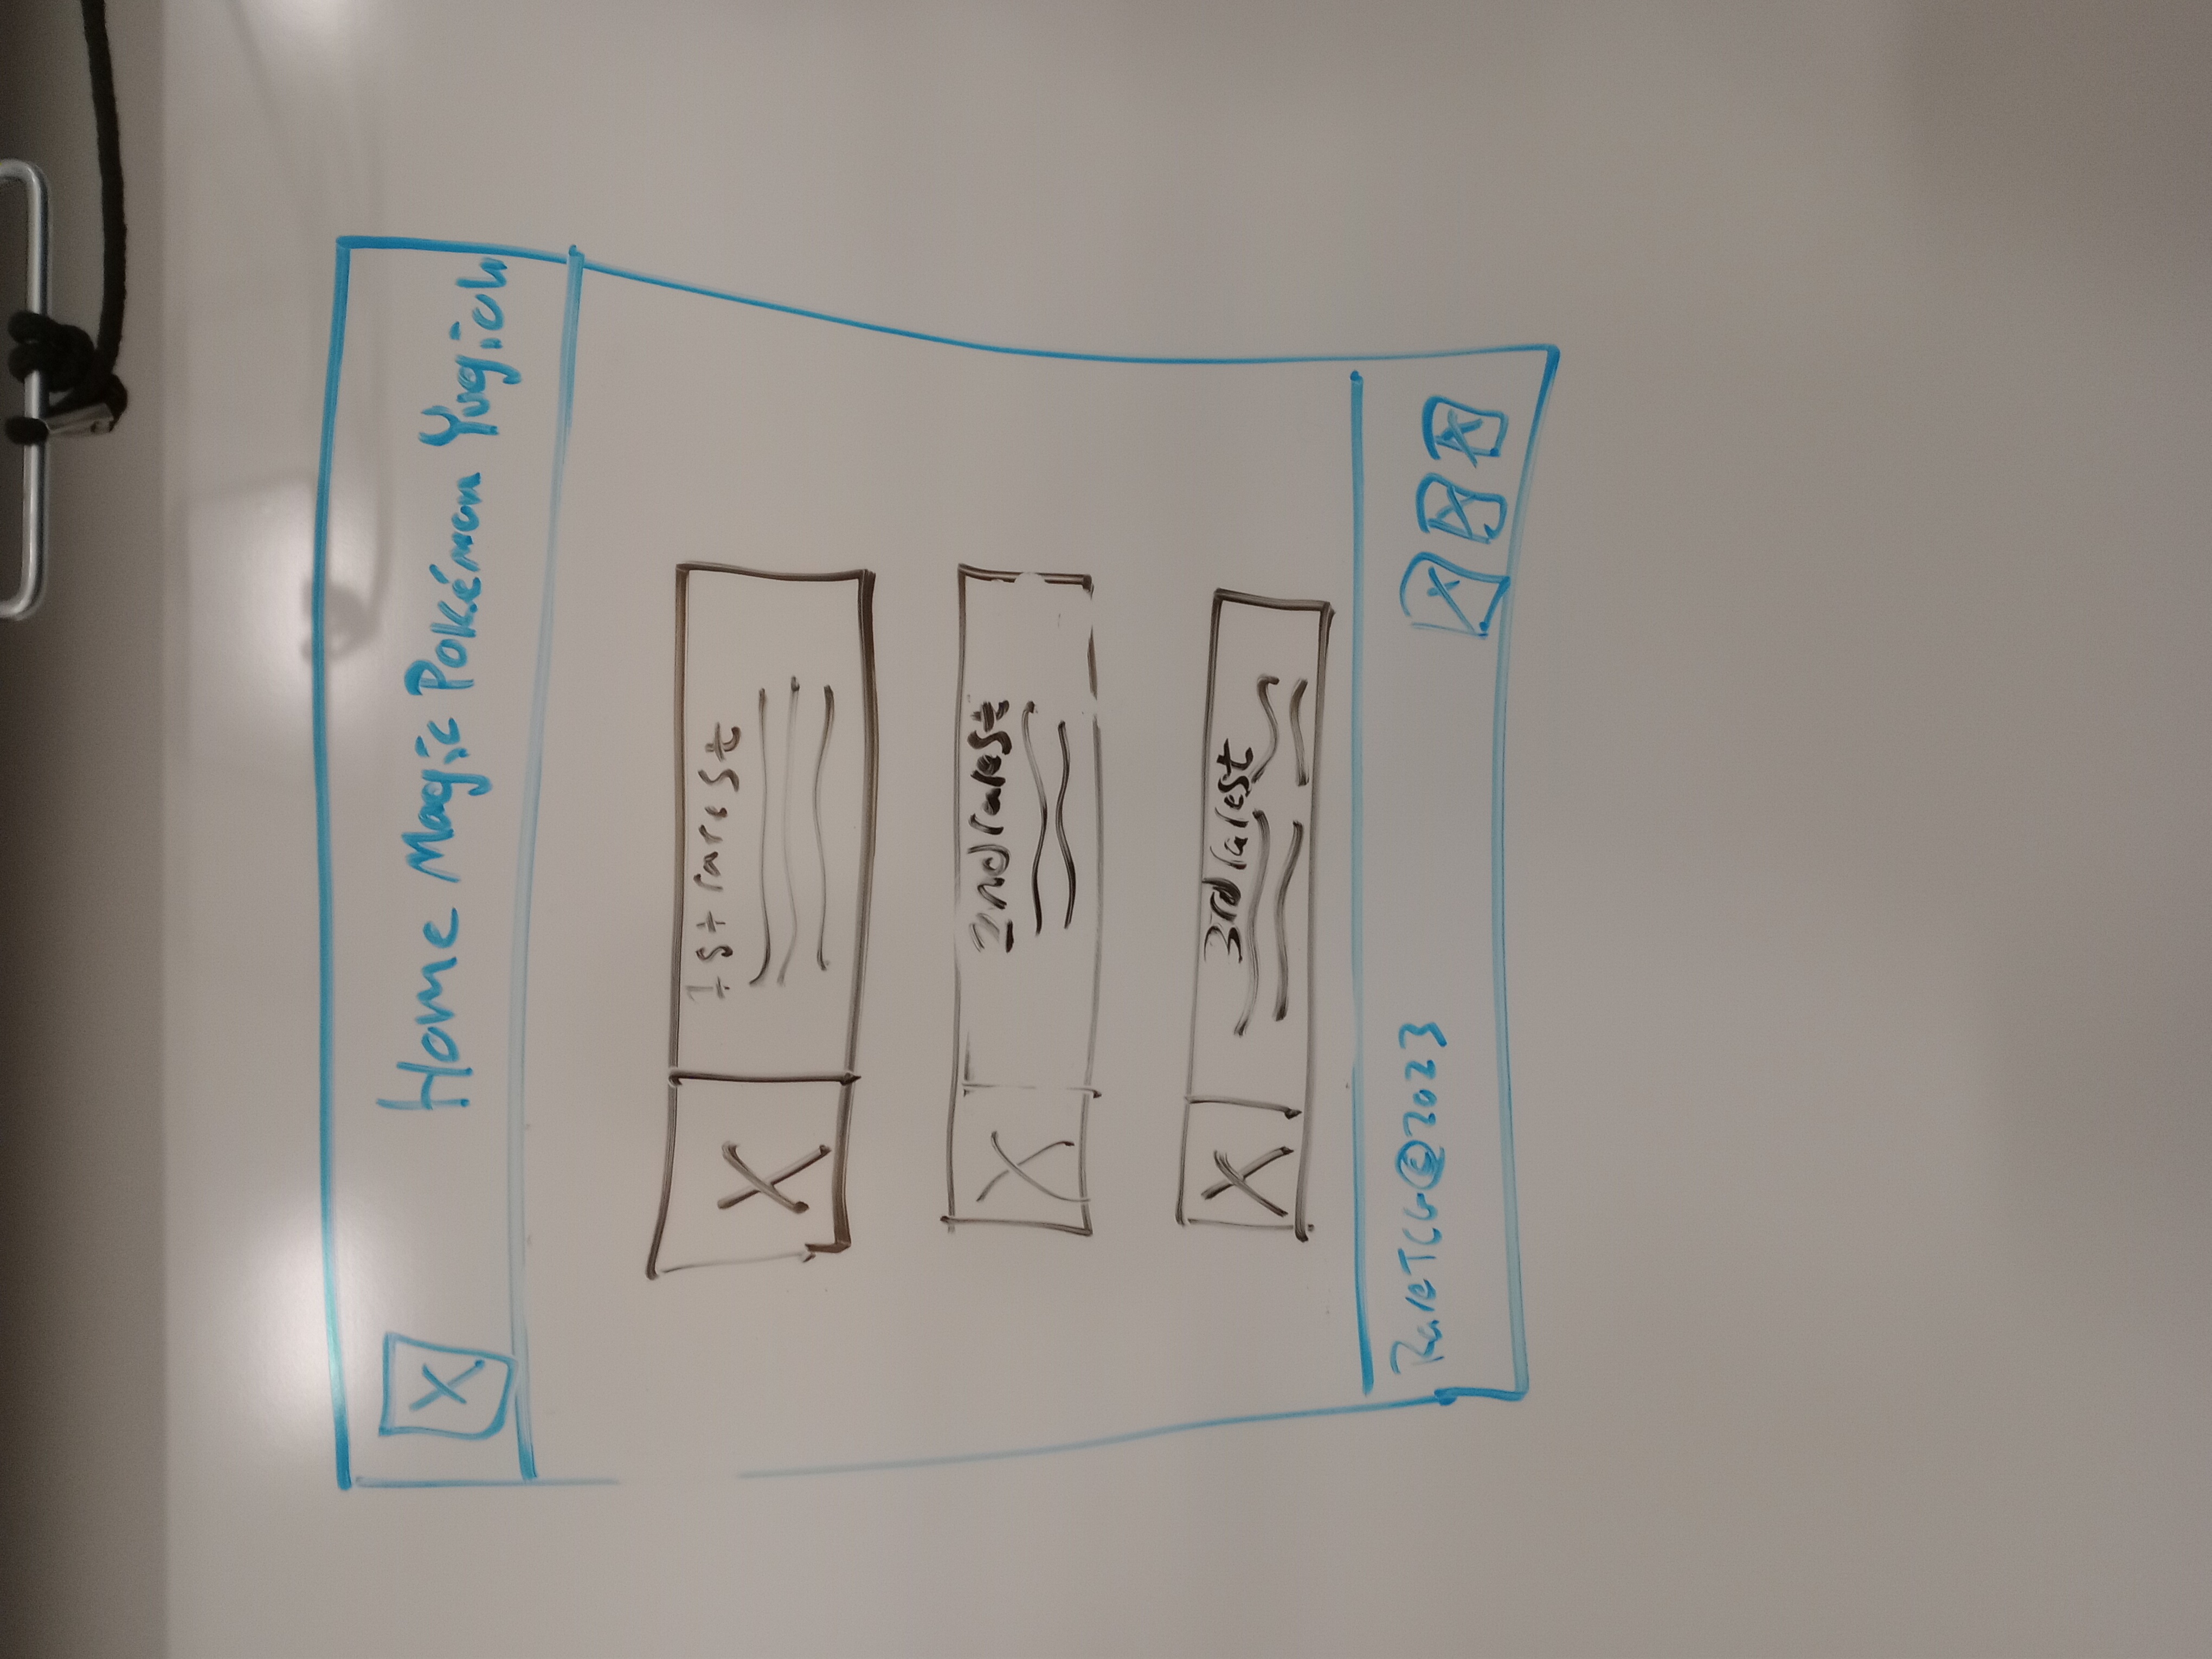 Home Magic Pokémon Yugioh
1st rarest
2nd rarest
3rd rarest
RareTCG©2023